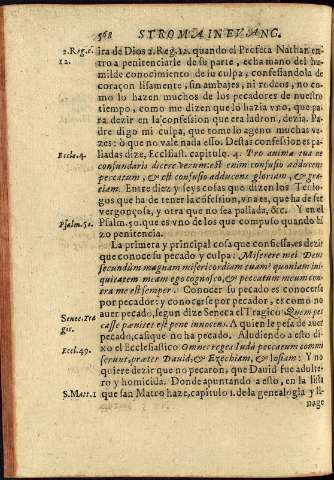 568 STROMA IN EVANC.
2.Reg.c.
12.
ira de Dios 2.Reg.12. quando el Profeta Nathan en-
tro a penitenciarle de su parte, echa mano del hu-
milde conocimiento de su culpa, confessandola de
coraçon lisamente, sin ambajes, ni rodeos, no co-
mo lo hazen muchos de los pecadores de nuestro
tiempo, como me dizen que lo hazia vno, que pa-
ra dezir en la confession que era ladron, dezia. Pa-
dre digo mi culpa, que tome lo ageno muchas ve-
zes: ò que no vale nada esso. Destas confessiones pa-
Eccle.4.
liadas dize, Ecclesiast. capitulo. 4. Pro anima tua ne
confundaris dicere verum: est enim confusio adducens
peccatum, & est confusio adducens gloriam, & gra-
tiam. Entre diez y seys cosas que dizen los Teolo-
gos que ha de tener la cõfession, vna es, que ha de ser
vergonçosa, y otra que no sea paliada, &c. Y en el
Psalm.50.
Psalm. 50. que es vno de los que compuso quando hi
zo penitencia.
La primera y principal cosa que confiessa, es dezir
que conoce su pecado y culpa: Miserere mei Deus
secundùm magnam misericordiam tuam: quoniam ini-
quitatem meam ego cognosco, & peccatum meum con-
tra me est semper. Conocer su pecado es conocerse
por pecador: y conocerse por pecador, es como no
Senec.Tra
gic.
auer pecado, segun dize Seneca el Tragico. Quem pec
casse pænitet est pene innocens. A quien le pesa de auer
pecado, casi que no ha pecado. Aludiendo a esto di-
Eccl.49.
xo el Ecclesiastico. Omnes reges Iudà peccatum commi
serunt, præter Dauid, & Ezechiam, & Iosiam: Y no
quiere dezir que no pecaron, que Dauid fue adulte-
ro y homicida. Donde apuntando a esto, en la lista
S.Matt.1
que san Mateo haze, capitulo 1. de la genealogia y li-
nage